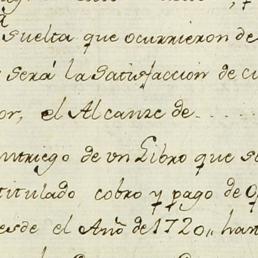 suelta que ocurrieron de
será la satisfaccion de cu
or, el Alcanze de . . . . .
ntriego de un Libro que se
titulado cobro y pago de
esde el Año de 1720,, han